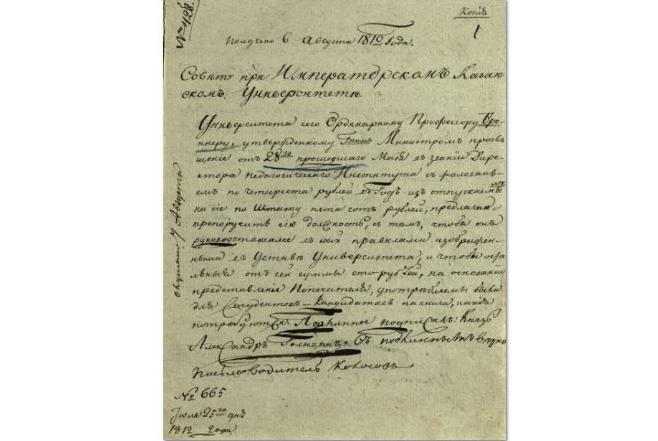 Копія
1
№ 428.
Получено 6 Августа 1812 Года.
Совѣту при Императорскомъ Казан-
скомъ Университетѣ.
Университета сего Ординарному Профессору Брон-
неру, утвержденному Министромъ просвѣ-
щенія отъ 28го прошедшаго Маія въ званіи Дире-
ктора педагогическаго Института съ жалованъ-
емъ по четыреста рублей въ Годъ изъ отпускаемыхъ
на сіе по Штату пяти сотъ рублей, предлагаю
препоручить сію должность, съ тѣмъ, чтобы онъ
руководствовался въ ней правилами изображен-
ными въ Уставѣ Университета; и чтобы оста-
льные отъ сей суммы сто рублей, на основаніи
представленія Попечителя, употребляемы были
для Студентовъ-Кандидатовъ на книги, какія
потребуются. Подлинное подписалъ: Князь
Александръ Голицынъ. Съ подлиннымъ вѣрно
Письмоводитель
Слушано 7 Августа
№ 665
Іюля 25го дня
1812 года